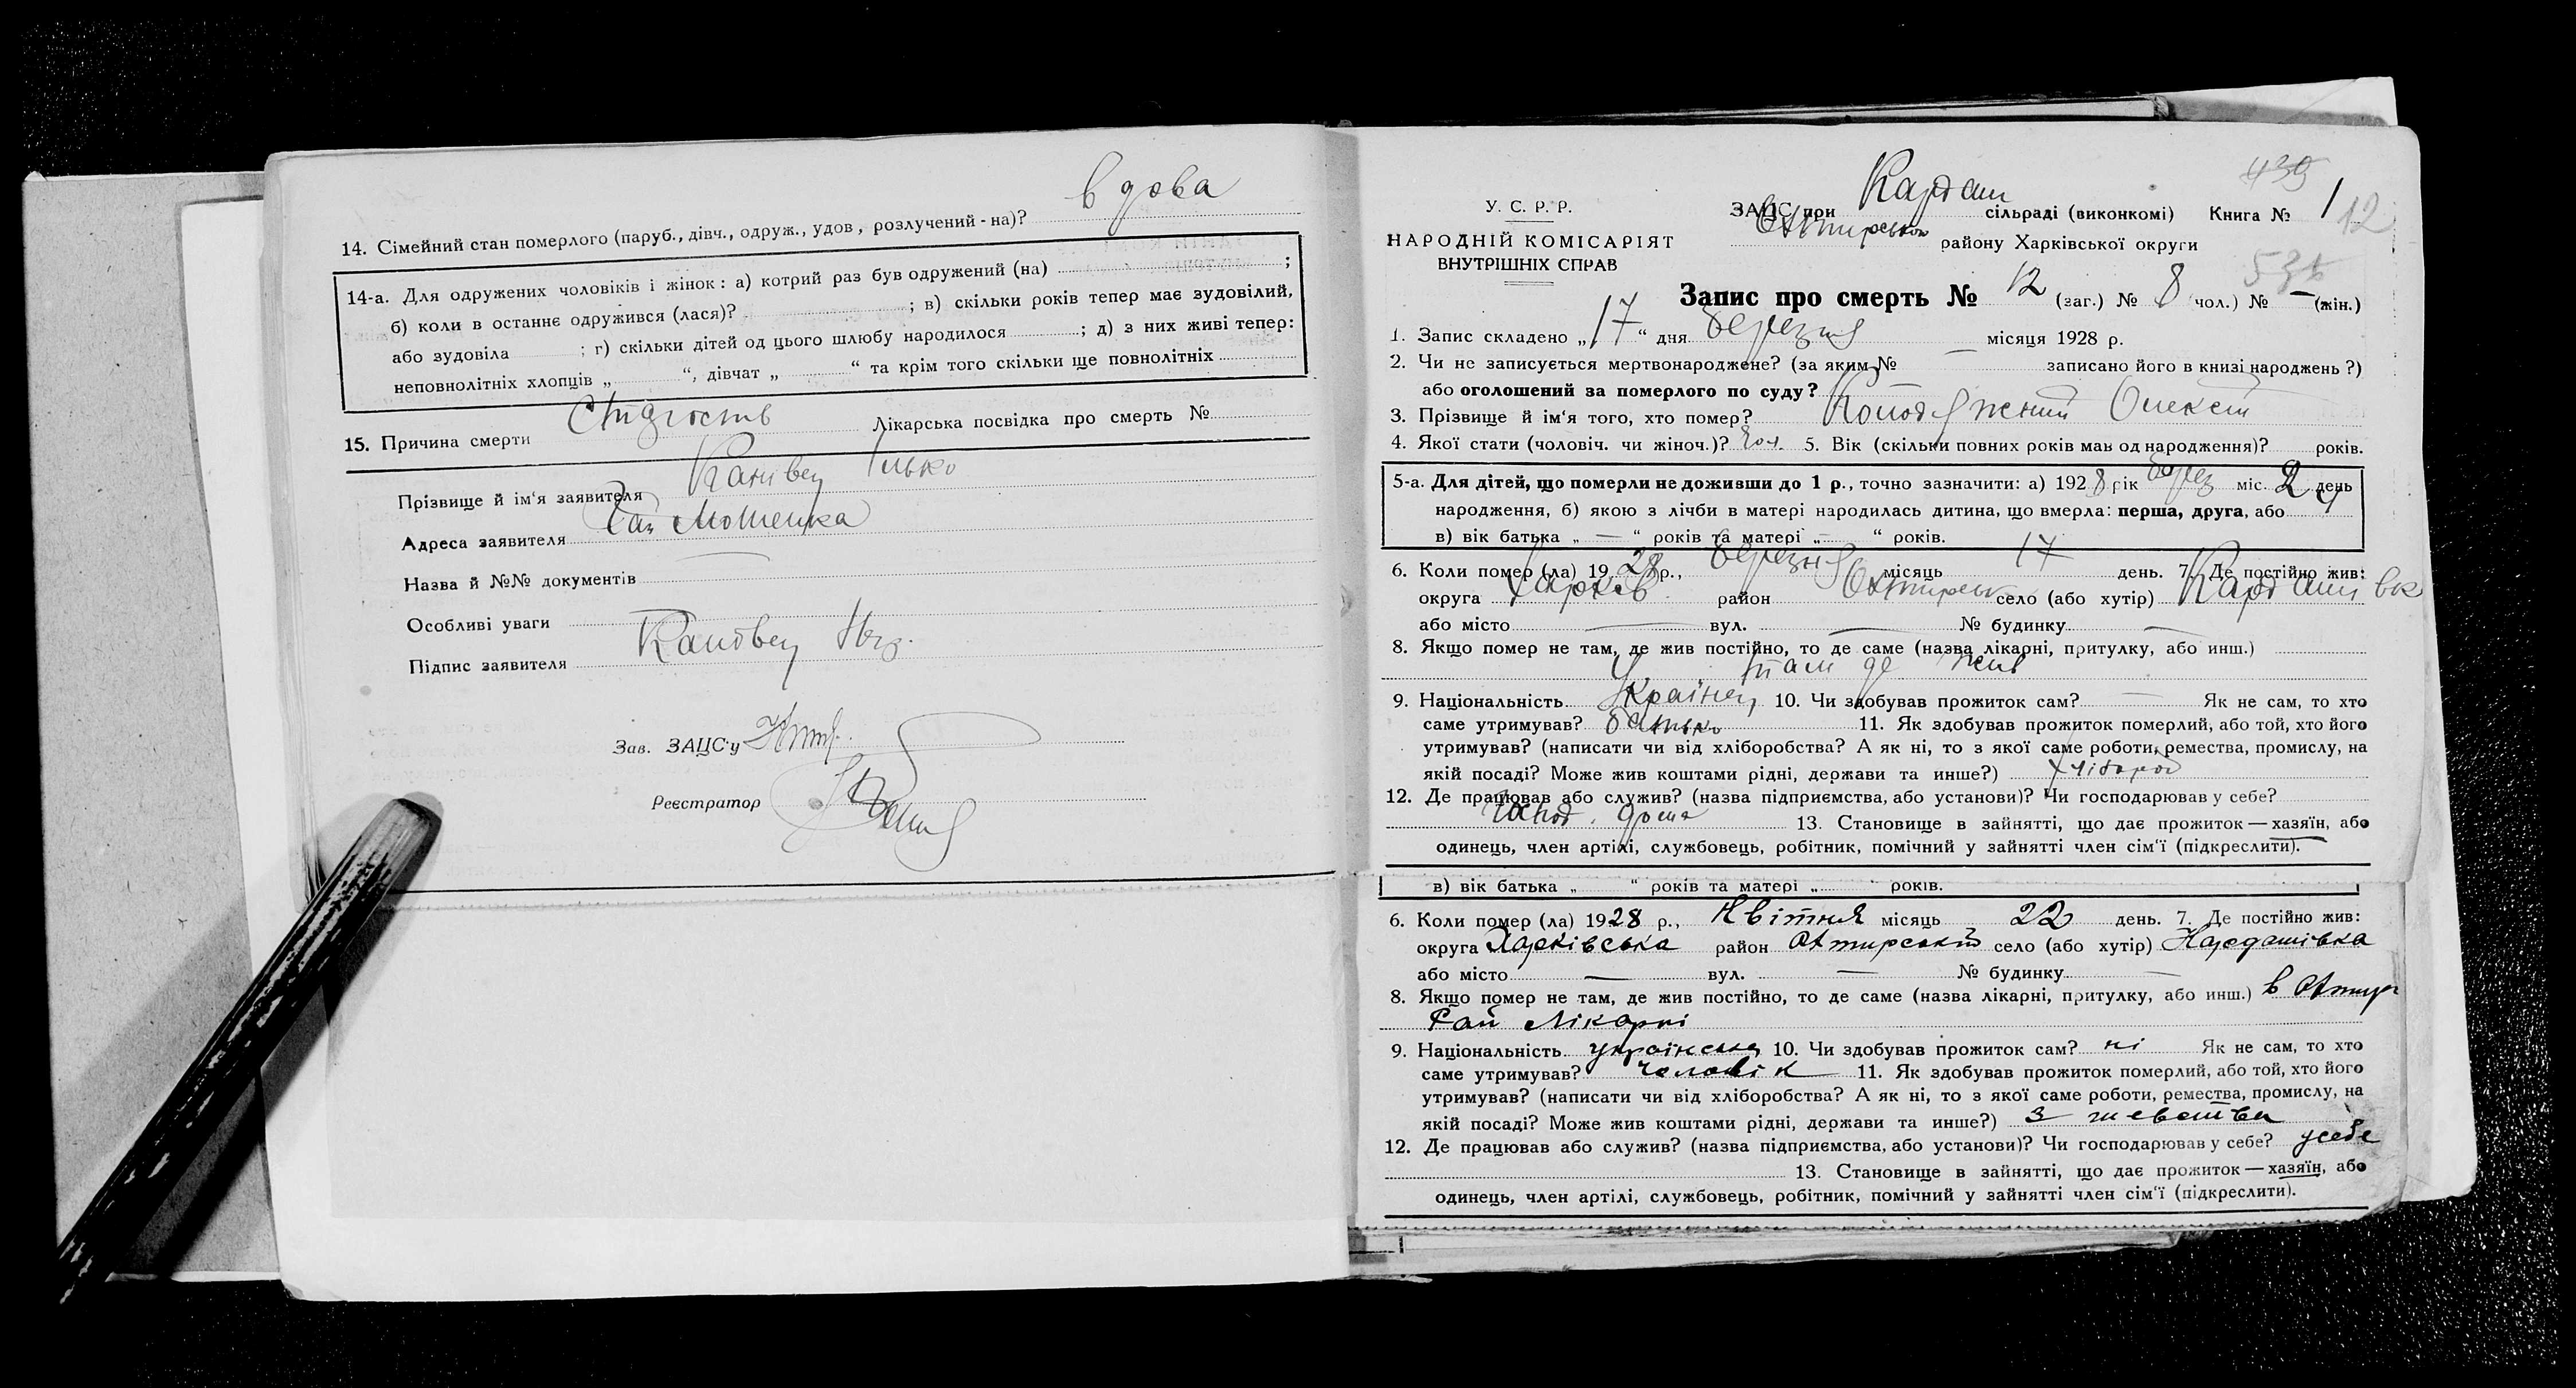 14. Сімейний стан померлого (паруб., дівч., одруж., удов, розлучений - на)? вдова
14-а. Для одружених чоловіків і жінок: а) котрий раз був одружений (на) ;
б) коли в останнє одружився (лася)? ; в) скільки років тепер має зудовілий,
або зудовіла ; г) скільки дітей од цього шлюбу народилося ; д) з них живі тепер:
неповнолітніх хлопців „ “, дівчат „ “ та крім того скільки ще повнолітніх
15. Причина смерти Старость Лікарська посвідка про смерть №
Прізвище й ім'я заявителя Канівец Ілько
Адреса заявителя
Назва й №№ документів —
Особливі уваги
Підпис заявителя Канівец
Зав. ЗАЦС'у
Реєстратор
439
У. С. Р. Р.
НАРОДНІЙ КОМІСАРІЯТ
ВНУТРІШНІХ СПРАВ
ЗАЦС при Кардаш сільраді (виконкомі) Книга № 1 12
Охтирськом району Харківської округи
Запис про смерть № 12 (заг.) № 8 чол.) № — (жін.)
1. Запис складено „17“ дня березня місяця 1928 р.
2. Чи не записується мертвонароджене? (за яким № — записано його в книзі народжень ?)
або оголошений за померлого по суду?
3. Прізвище й ім'я того, хто помер? Колодяжний Олексій
4. Якої стати (чоловіч. чи жіноч.)? чол. 5. Вік (скільки повних років мав од народження)? років.
5-а. Для дітей, що померли не доживши до 1 р., точно зазначити: а) 1928 рік берез міс. 2 день
народження, б) якою з лічби в матері народилась дитина, що вмерла: перша, друга, або 4
в) вік батька „ — “ років та матері „ — “ років.
6. Коли помер (ла) 1928 р., березня місяць 17 день. 7. Де постійно жив:
округа Харків район Охтирськ село (або хутір) Кардашівк
або місто — вул. — № будинку —
8. Якщо помер не там, де жив постійно, то де саме (назва лікарні, притулку, або инш.)
там де жив
9. Національність Українец 10. Чи здобував прожиток сам? — Як не сам, то хто
саме утримував? батько 11. Як здобував прожиток померлий, або той, хто його
утримував? (написати чи від хліборобства? А як ні, то з якої саме роботи, ремества, промислу, на
якій посаді? Може жив коштами рідні, держави та инше?) хлібороб
12. Де працював або служив? (назва підприємства, або установи)? Чи господарював у себе?
дома 13. Становище в зайнятті, що дає прожиток — хазяїн, або
одинець, член артілі, службовець, робітник, помічний у зайнятті член сім'ї (підкреслити).
в) вік батька „ “ років та матері „ років.
6. Коли помер (ла) 1928 р., Квітня місяць 22 день. 7. Де постійно жив:
округа Харківська район Охтирський село (або хутір) Кардашівка
або місто — вул. — № будинку —
8. Якщо помер не там, де жив постійно, то де саме (назва лікарні, притулку, або инш.) в
Рай Лікарні
9. Національність українська 10. Чи здобував прожиток сам? ні Як не сам, то хто
саме утримував? чоловік 11. Як здобував прожиток померлий, або той, хто його
утримував? (написати чи від хліборобства? А як ні, то з якої саме роботи, ремества, промислу, на
якій посаді? Може жив коштами рідні, держави та инше?) з шевства
12. Де працював або служив? (назва підприємства, або установи)? Чи господарював у себе? усебе
13. Становище в зайнятті, що дає прожиток — хазяїн, або
одинець, член артілі, службовець, робітник, помічний у зайнятті член сім'ї (підкреслити).